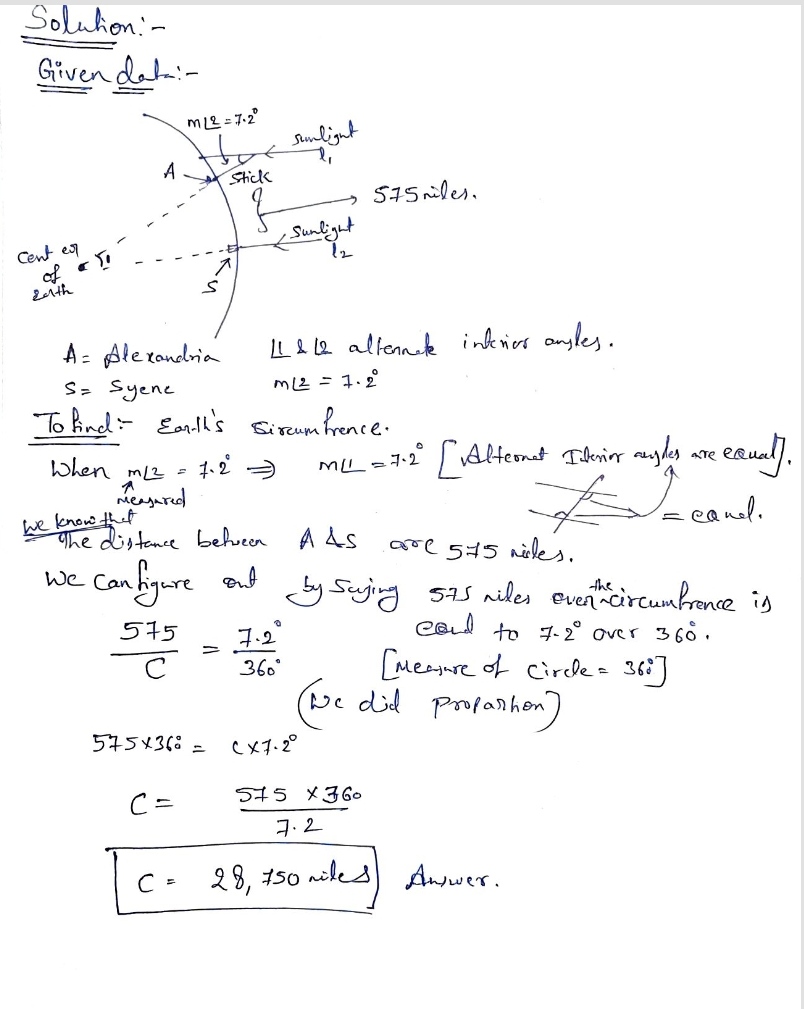 Solution:-
Given data:-
m∠2 = 7.2°
sunlight
l₁
A
Stick
575 miles.
Sunlight
l₂
Center of Earth
∠1
S
A = Alexandria ∠1 & ∠2 alternate interior angles.
S = Syene m∠2 = 7.2°
To find:- Earth's circumfrence.
When m∠2 = 7.2° ⇒ m∠1 = 7.2° [Alternet Interior angles are equal].
measured
= equal.
we know that
The distance between A & S are 575 miles.
We can figure out by saying 575 miles over the circumfrence is
equal to 7.2° over 360°.
575/C = 7.2°/360°
[Measure of circle = 360°]
(We did proparhon)
575×360° = C×7.2°
C = 575 × 360 / 7.2
C = 28,750 miles Answer.